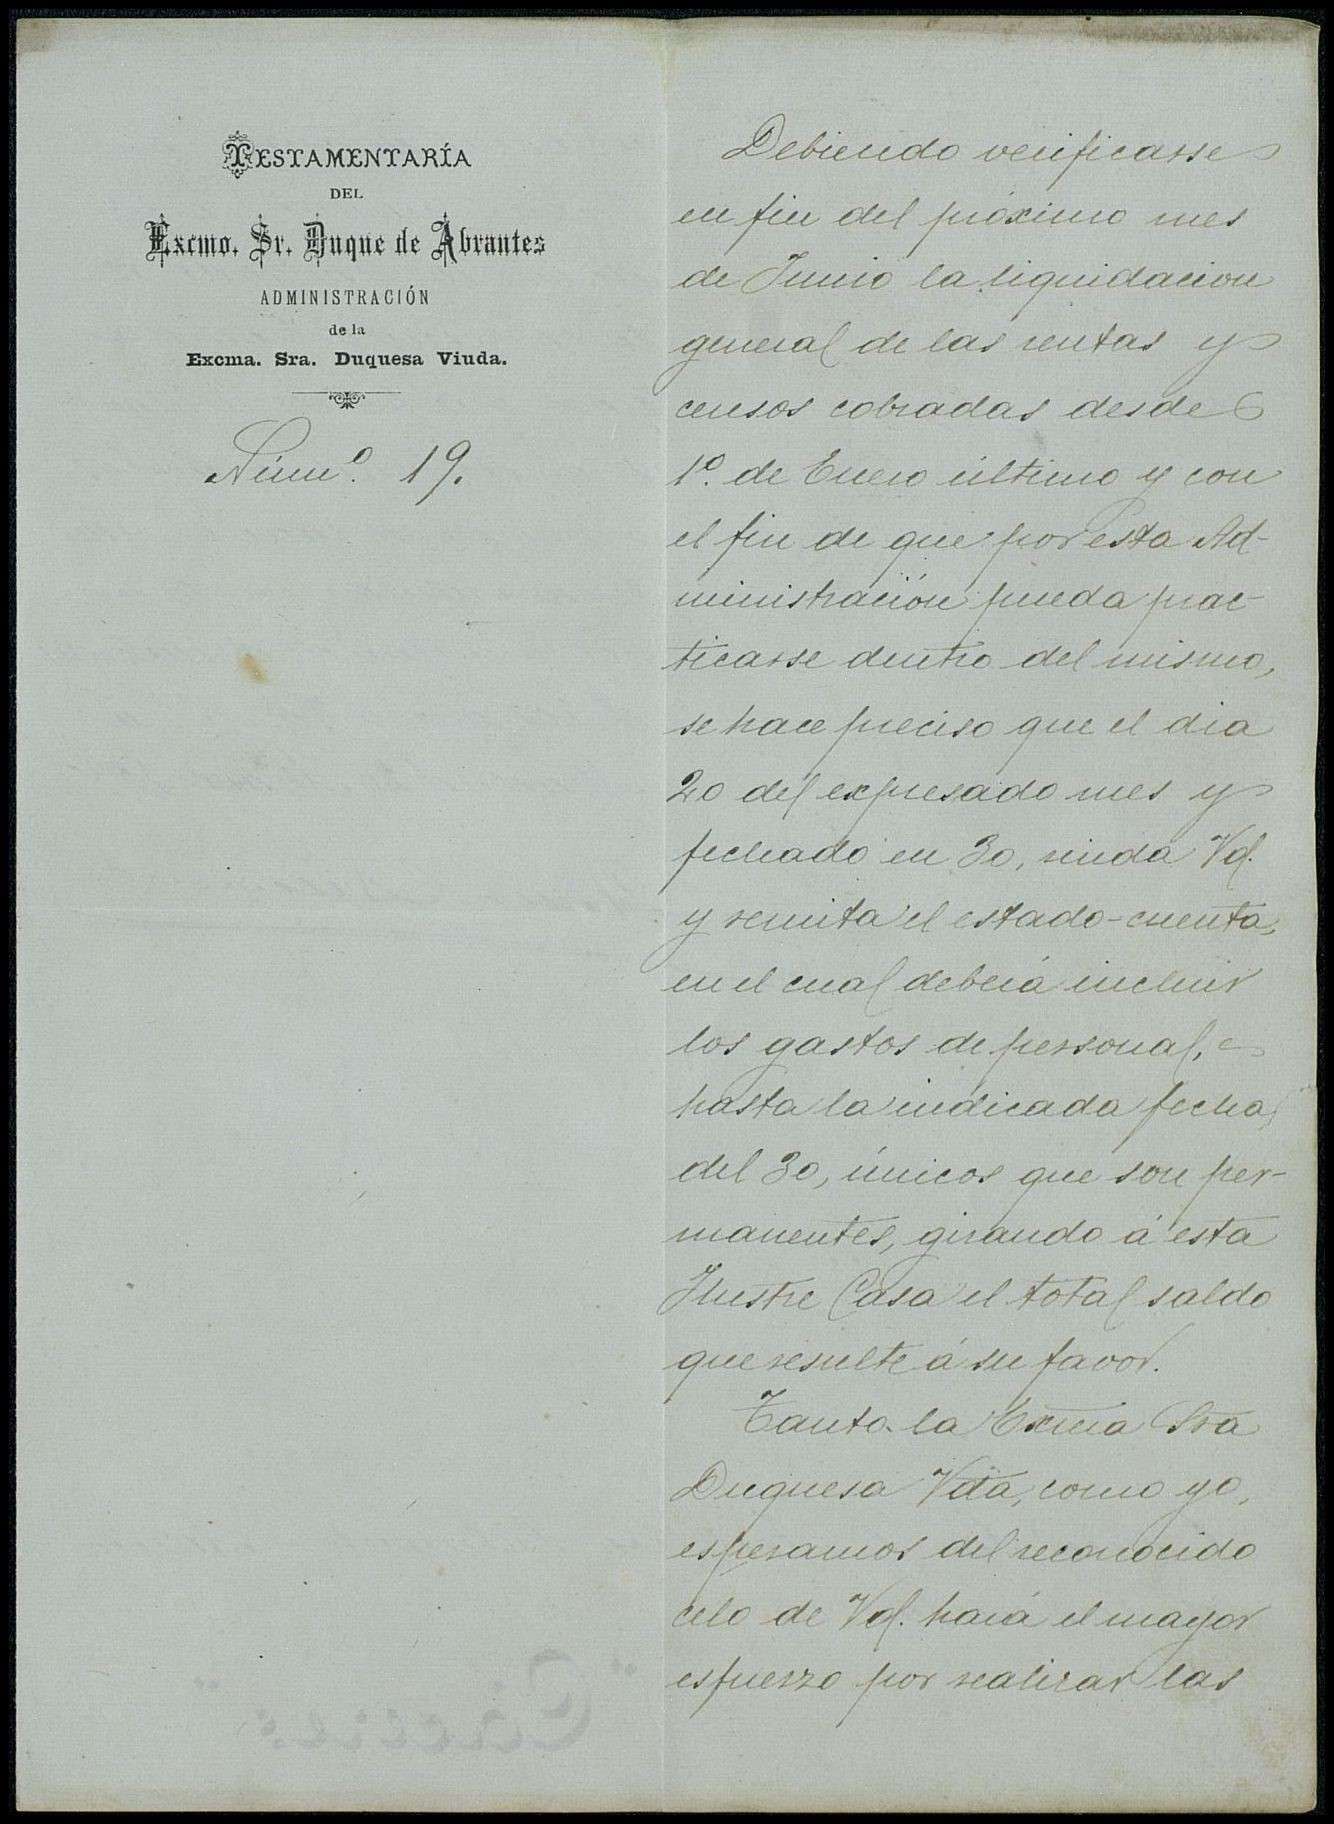 TESTAMENTARÍA
DEL
Excmo. Sr. Duque de Abrantes
ADMINISTRACIÓN
de la
Excma. Sra. Duquesa Viuda.
Núm.º 19.
Debiendo verificarse
en fin del próximo mes
de Junio la liquidacion
general de las rentas y
censos cobradas desde
1º. de Enero último y con
el fin de que por esta Ad-
ministración pueda prac-
ticarse dentro del mismo,
se hace preciso que el dia
20 del expresado mes y
fechado en 30, rinda Vd.
y remita el estado-cuenta,
en el cual deberá incluir
los gastos de personal,
hasta la indicada fecha
del 30, únicos que son per-
manentes, girando á esta
Ilustre Casa el total saldo
que resulte á su favor.
Tanto la Excma Sra
Duquesa Vda, como yo,
esperamos del reconocido
celo de Vd. hará el mayor
esfuerzo por realizar las